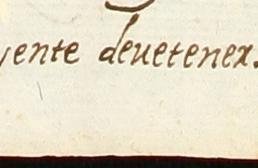 yente deuetener.